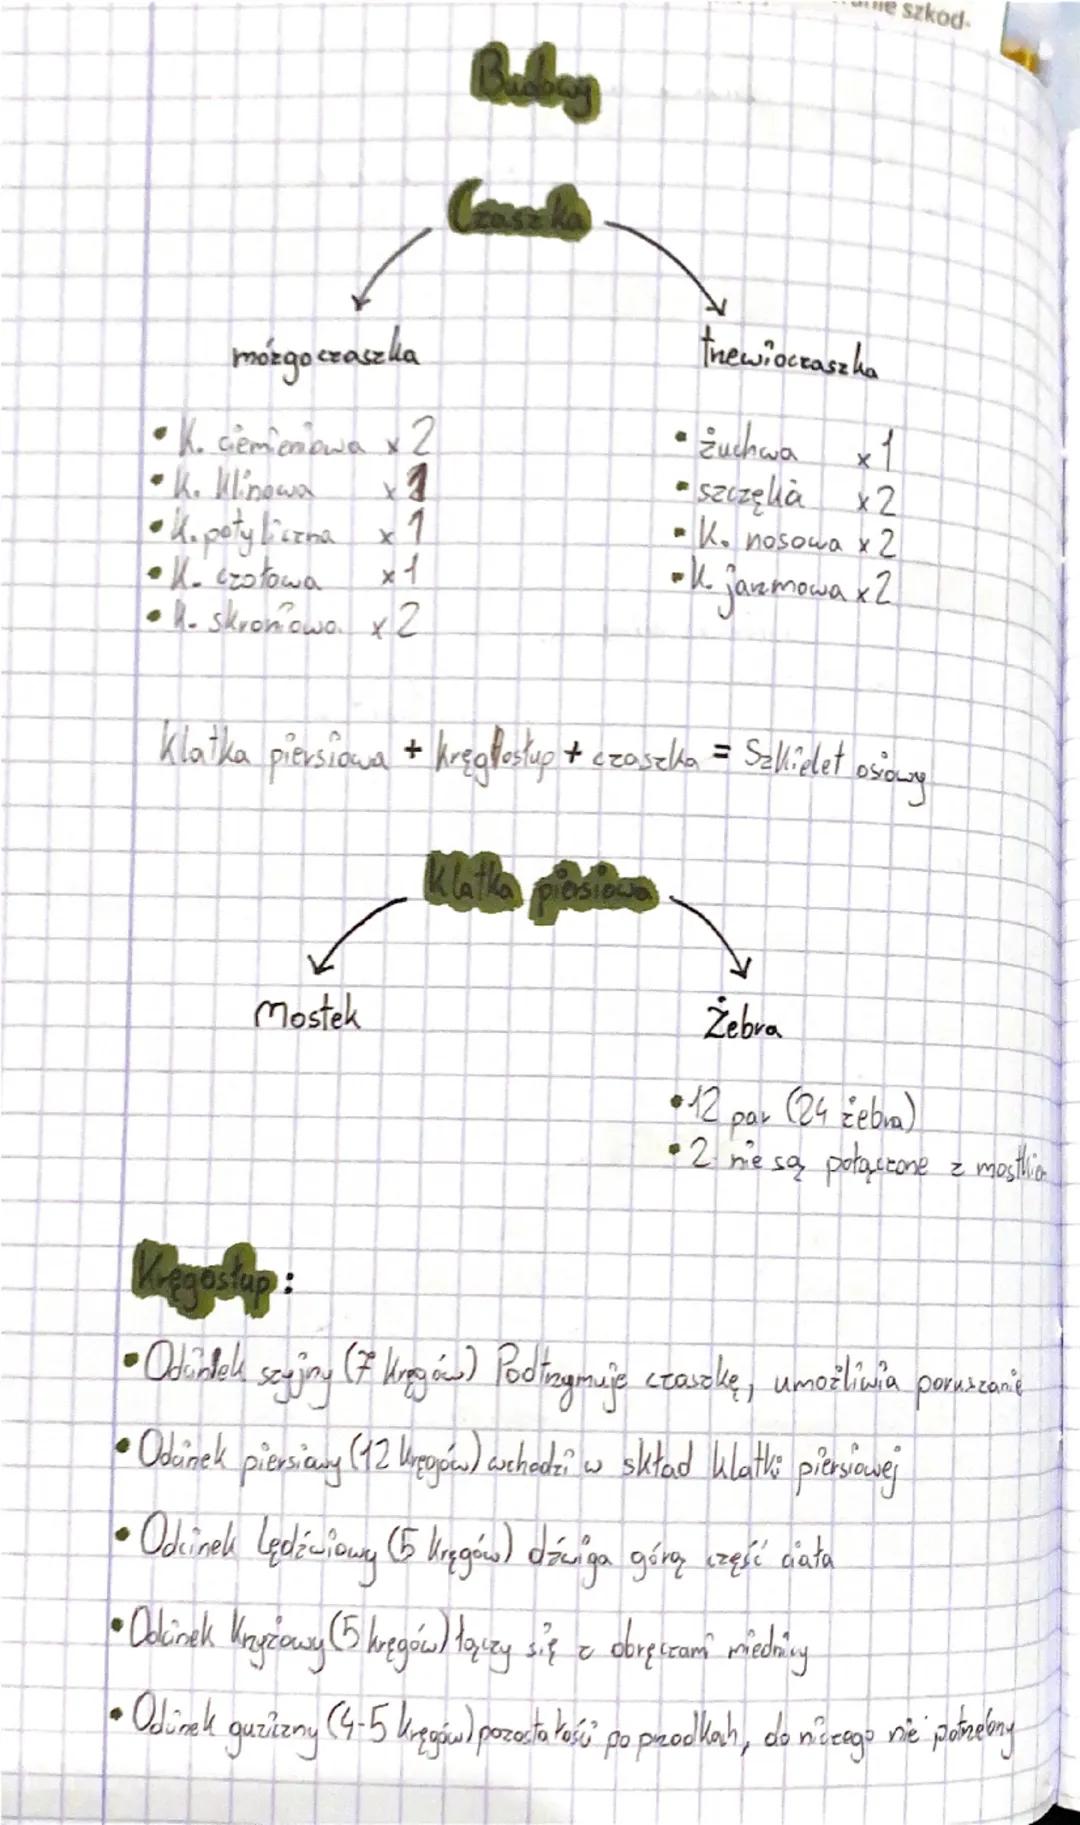 szkod-
Budowy
Czaszka
mózgoczaszka
trzewioczaszka
• K. ciemieniowa x 2
• K. klinowa x 1
• K. potyliczna x 1
• K. czołowa x 1
• K. skroniowa x 2
• żuchwa x 1
• szczęka x 2
• K. nosowa x 2
• K. jarzmowa x 2
Klatka piersiowa + kręgosłup + czaszka = Szkielet osiowy
Klatka piersiowa
Mostek
Żebra
• 12 par (24 żebra)
• 2 nie są połączone z mostkie
Kręgosłup:
• Odcinek szyjny (7 kręgów) Podtrzymuje czaszkę, umożliwia poruszanie
• Odcinek piersiowy (12 kręgów) wchodzi w skład klatki piersiowej
• Odcinek lędźwiowy (5 kręgów) dźwiga górą część ciała
• Odcinek krzyżowy (5 kręgów) łączy się z obręczami miednicy
• Odcinek guziczny (4-5 kręgów) pozostałość po przodkach, do niczego nie potrzebny